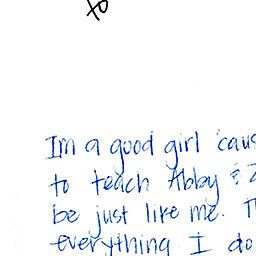 Im a good girl 'caus
to teach Abby &
be just like me. T
everything I do